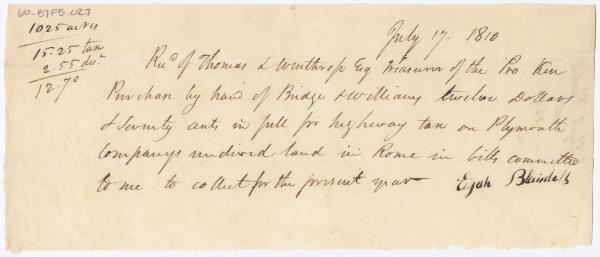 60-B7F5-027
1025 acres
15.25 tax
2.55 dis.t
12.70
July 17 - 1810
Rec.d of Thomas L Winthrop Esq Treasurer of the Pro. Ken
Purchase by hand of Bridge & Williams twelve Dollars
& Seventy cents in full for highway tax on Plymouth
Companys undivided land in Rome in bills committed
to me to collect for the present year
Elijah Blaisdell